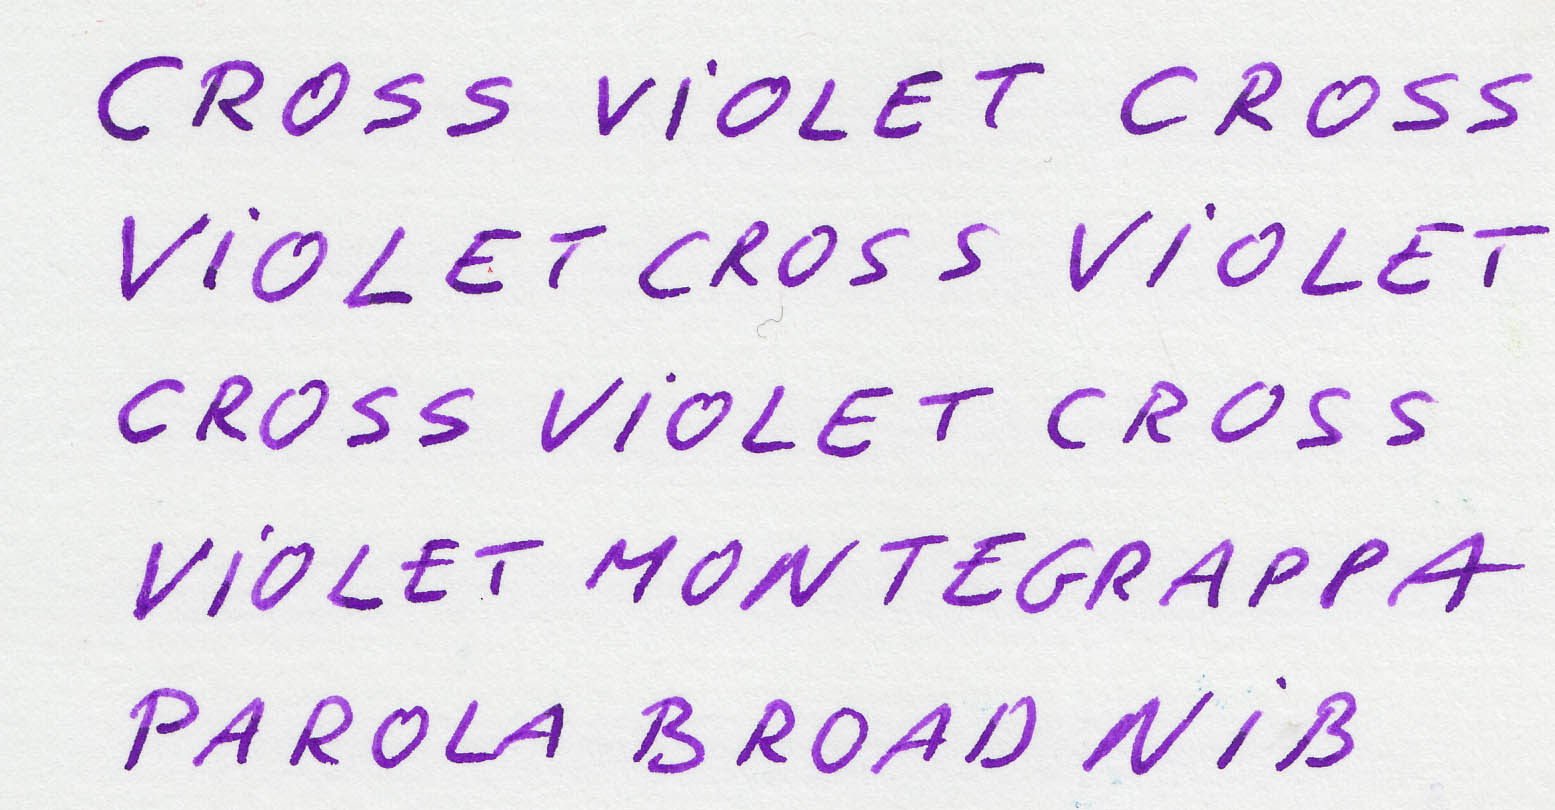 CROSS ViOLET CROSS
ViOLET CROSS ViOLET
CROSS ViOLET CROSS
ViOLET MONTEGRAPPA
PAROLA BROAD NiB